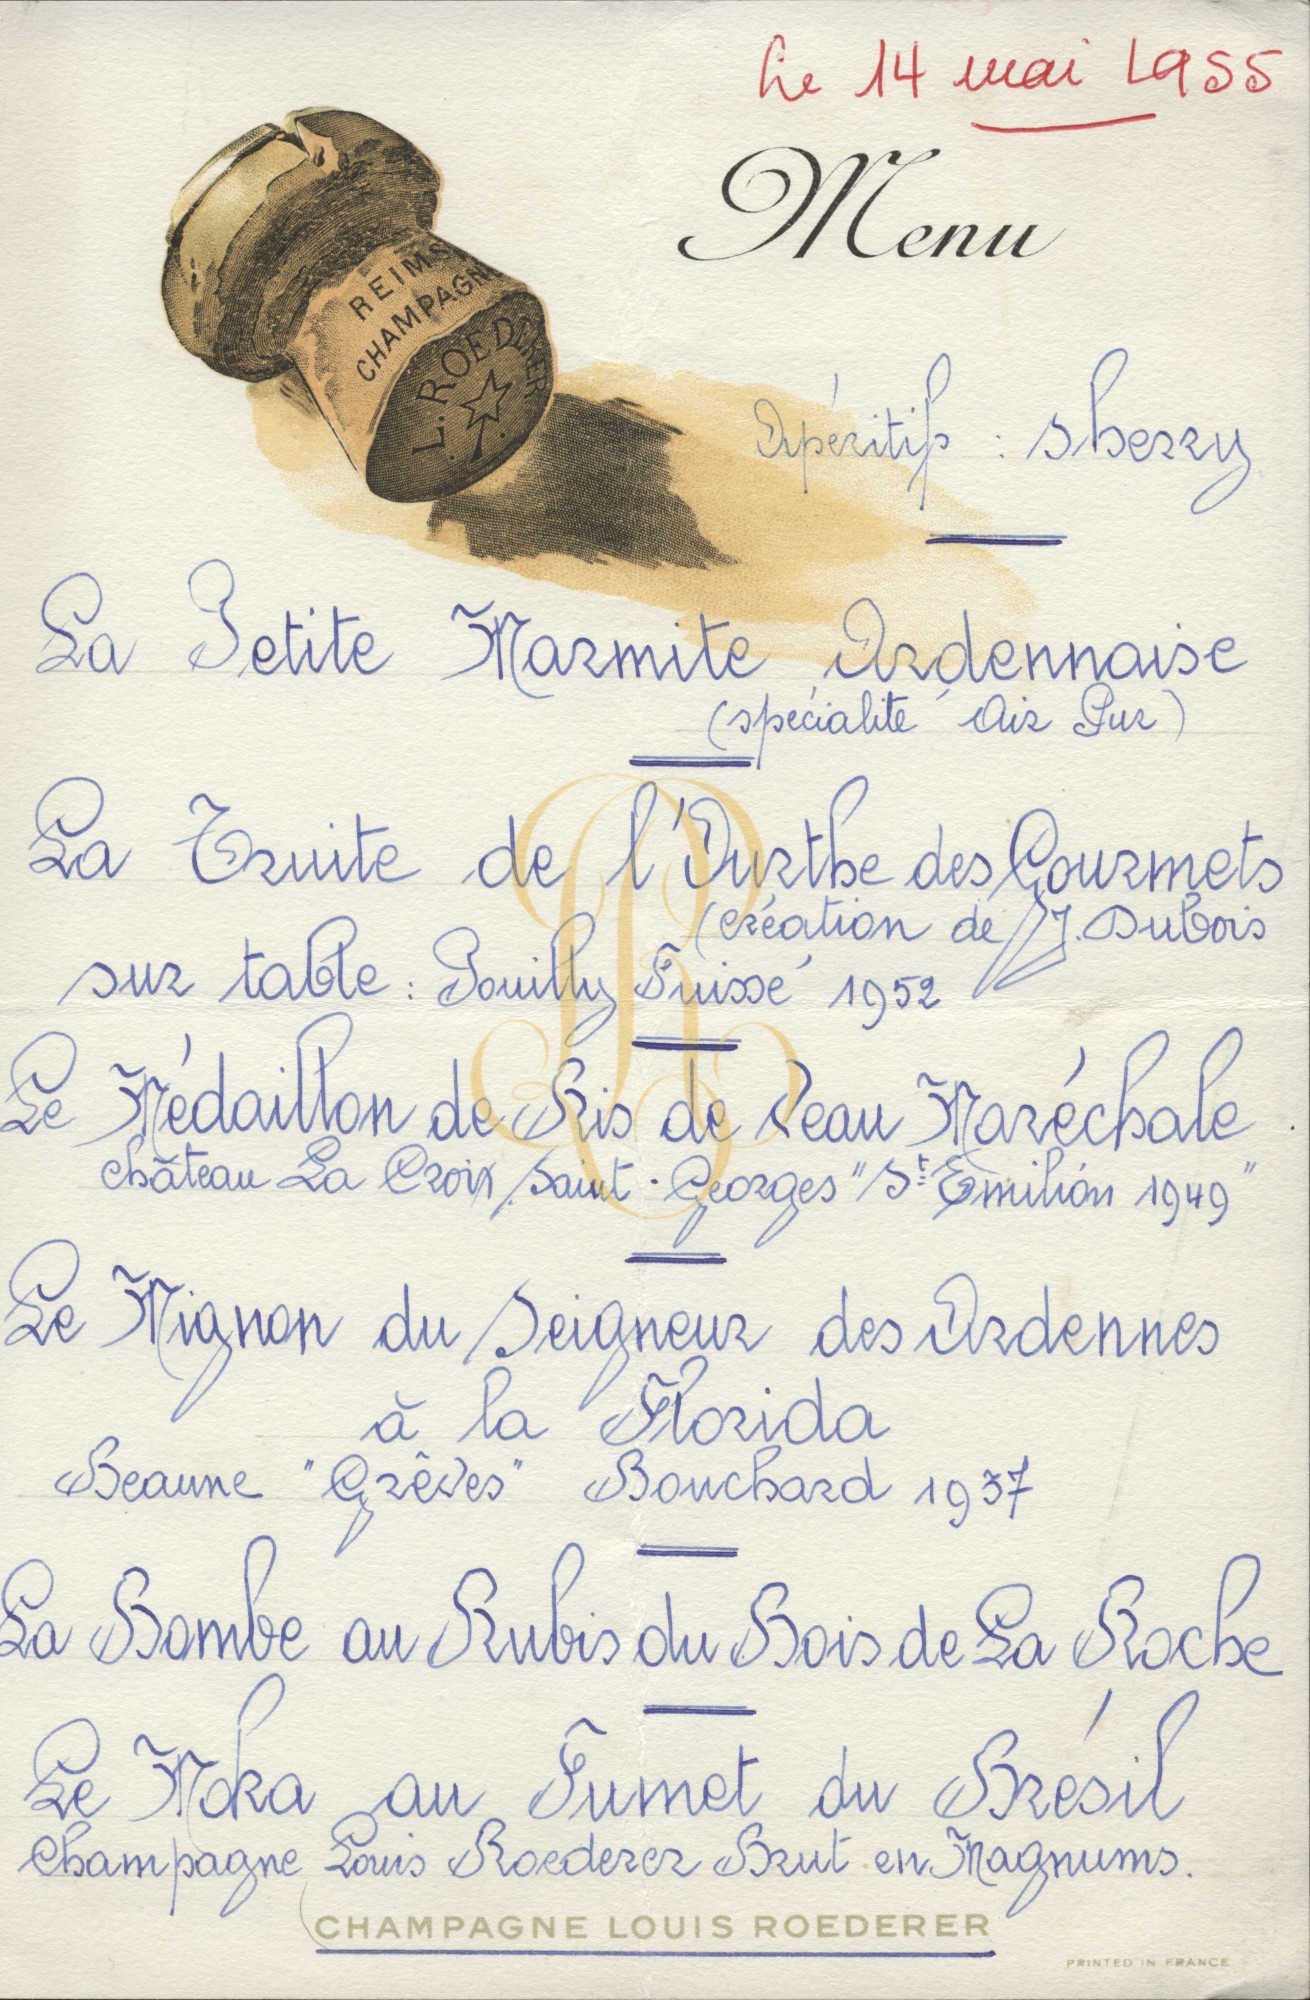 Le 14 mai 1955
Menu
REIMS
CHAMPAGNE
L. ROEDERER
Apéritif : Sherry
La Petite Marmite Ardennaise
(spécialité Air Pur)
La Truite de l'Ourthe des Gourmets
(création de J. Dubois
sur table : Pouilly Fuissé 1952
Le Médaillon de Ris de Veau Maréchale
Château La Croix Saint-Georges "St Emilion 1949"
Le Mignon du Seigneur des Ardennes
à la Florida
Beaune "Grêves" Bouchard 1937
La Bombe au Rubis du Bois de La Roche
Le Moka au Fumet du Brésil
Champagne Louis Roederer Brut en Magnums.
CHAMPAGNE LOUIS ROEDERER
PRINTED IN FRANCE